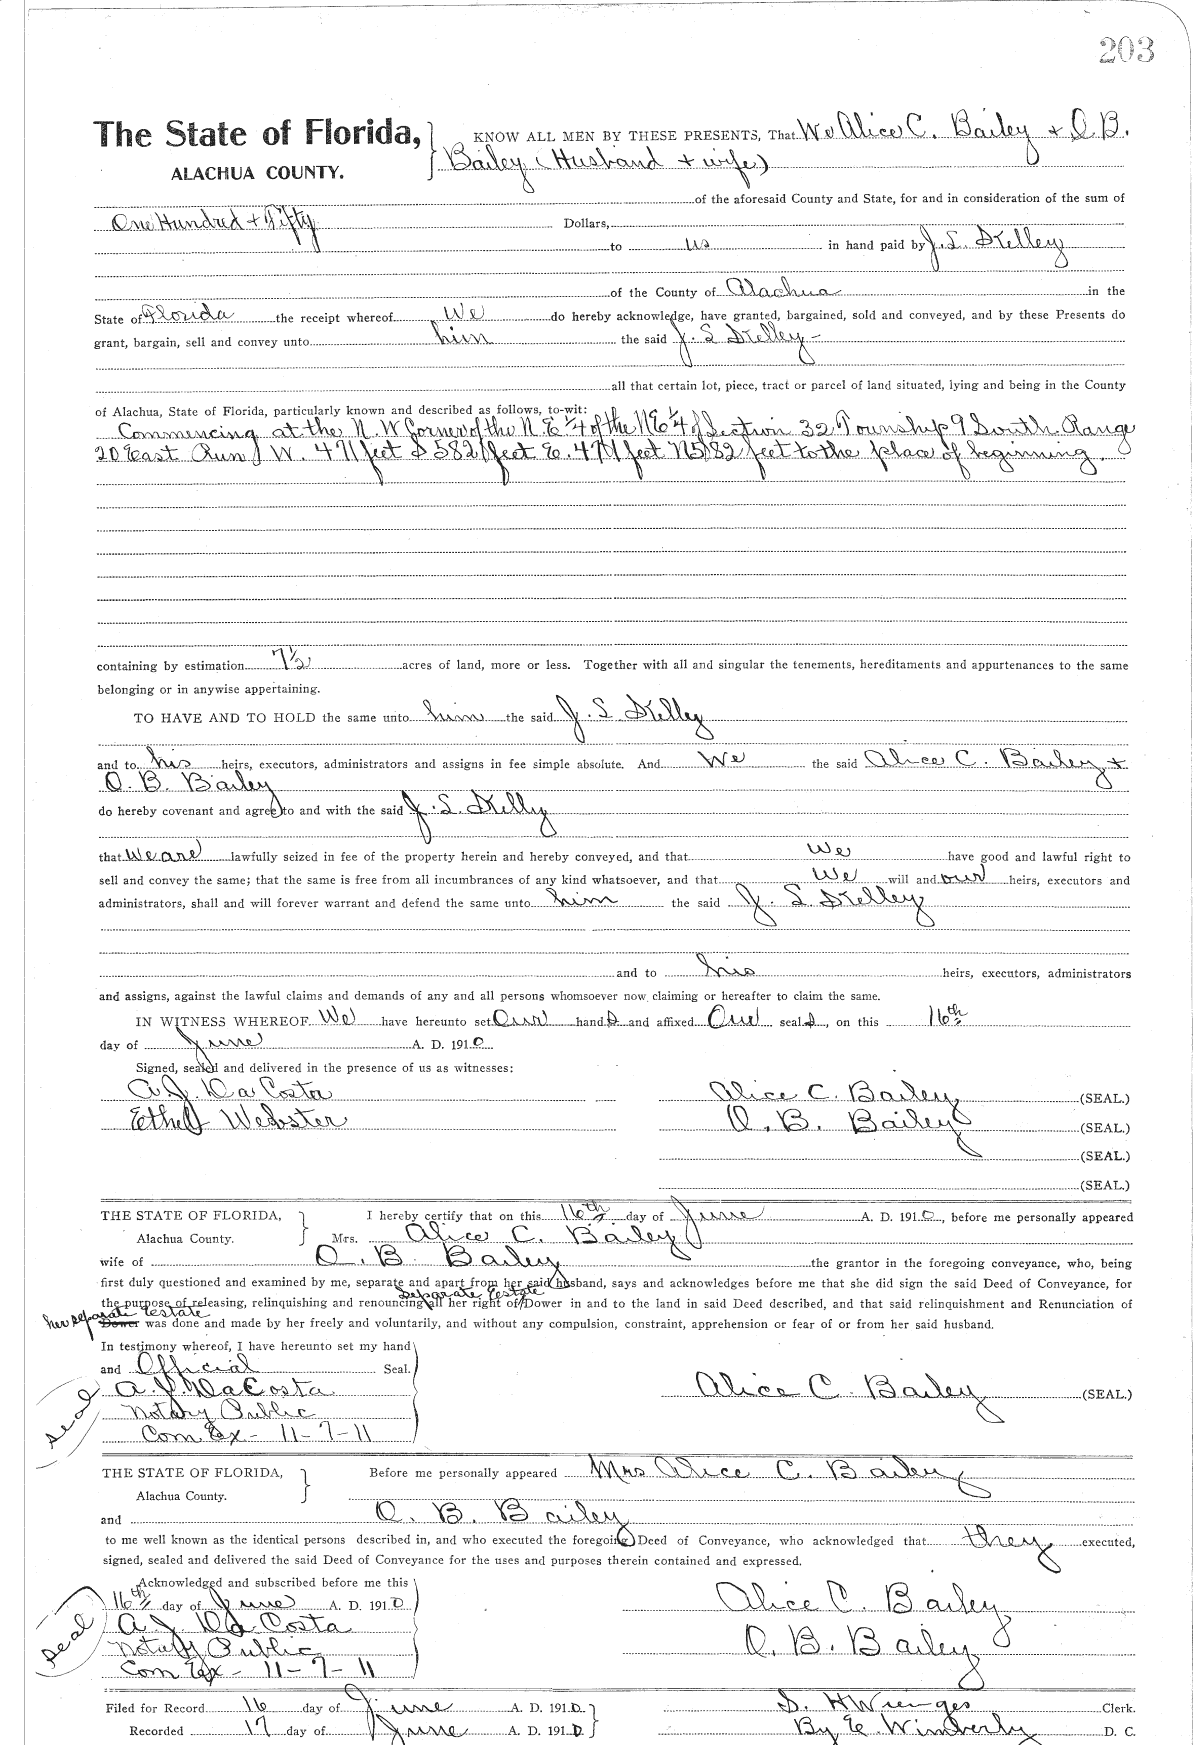 203
The State of Florida, KNOW ALL MEN BY THESE PRESENTS, That We Alice C. Bailey & O. B.
ALACHUA COUNTY. Bailey (Husband + wife)
of the aforesaid County and State, for and in consideration of the sum of
One Hundred + Fifty Dollars,
to us in hand paid by J. S. Kelley
of the County of Alachua in the
State of Florida the receipt whereof We do hereby acknowledge, have granted, bargained, sold and conveyed, and by these Presents do
grant, bargain, sell and convey unto him the said J. S Kelley -
all that certain lot, piece, tract or parcel of land situated, lying and being in the County
of Alachua, State of Florida, particularly known and described as follows, to-wit:
Commencing at the N. W Corner of the N E 1/4 of the N E 1/4 of Section 32 Township 9 South Range
20 East Run W. 471 feet S 582 feet E. 471 feet N 582 feet to the place of beginning.
containing by estimation 7½ acres of land, more or less. Together with all and singular the tenements, hereditaments and appurtenances to the same
belonging or in anywise appertaining.
TO HAVE AND TO HOLD the same unto him the said J. S Kelley
and to his heirs, executors, administrators and assigns in fee simple absolute. And We the said Alice C. Bailey +
O. B. Bailey
do hereby covenant and agree to and with the said J. S. Kelly
that We are lawfully seized in fee of the property herein and hereby conveyed, and that We have good and lawful right to
sell and convey the same; that the same is free from all incumbrances of any kind whatsoever, and that We will and our heirs, executors and
administrators, shall and will forever warrant and defend the same unto him the said J. S Kelley
and to his heirs, executors, administrators
and assigns, against the lawful claims and demands of any and all persons whomsoever now claiming or hereafter to claim the same.
IN WITNESS WHEREOF We have hereunto set Our hand s and affixed Our seal s, on this 16th
day of June A. D. 1910
Signed, sealed and delivered in the presence of us as witnesses:
A. J. Da Costa Alice C. Bailey (SEAL.)
Ethel Webster O. B. Bailey (SEAL.)
(SEAL.)
(SEAL.)
THE STATE OF FLORIDA, I hereby certify that on this 16th day of June A. D. 1910, before me personally appeared
Alachua County. Mrs. Alice C. Bailey
wife of O. B. Bailey the grantor in the foregoing conveyance, who, being
first duly questioned and examined by me, separate and apart from her said husband, says and acknowledges before me that she did sign the said Deed of Conveyance, for
Separate Estate
the purpose of releasing, relinquishing and renouncing all her right of Dower in and to the land in said Deed described, and that said relinquishment and Renunciation of
her separate estate
Dower was done and made by her freely and voluntarily, and without any compulsion, constraint, apprehension or fear of or from her said husband.
In testimony whereof, I have hereunto set my hand
and Official Seal.
A. J. DaCosta Alice C. Bailey (SEAL.)
seal
Notary Public
Com Ex - 11-7-11
THE STATE OF FLORIDA, Before me personally appeared Mrs Alice C. Bailey
Alachua County.
and O. B. Bailey
to me well known as the identical persons described in, and who executed the foregoing Deed of Conveyance, who acknowledged that they executed,
signed, sealed and delivered the said Deed of Conveyance for the uses and purposes therein contained and expressed.
Acknowledged and subscribed before me this
16th day of June A. D. 1910 Alice C. Bailey
seal
A. J. Da Costa
Notary Public O. B. Bailey
Com Ex - 11-7-11
Filed for Record 16 day of June A. D. 1910 S. H Wienges Clerk.
Recorded 17 day of June A. D. 1910 By E. Wimberly D. C.